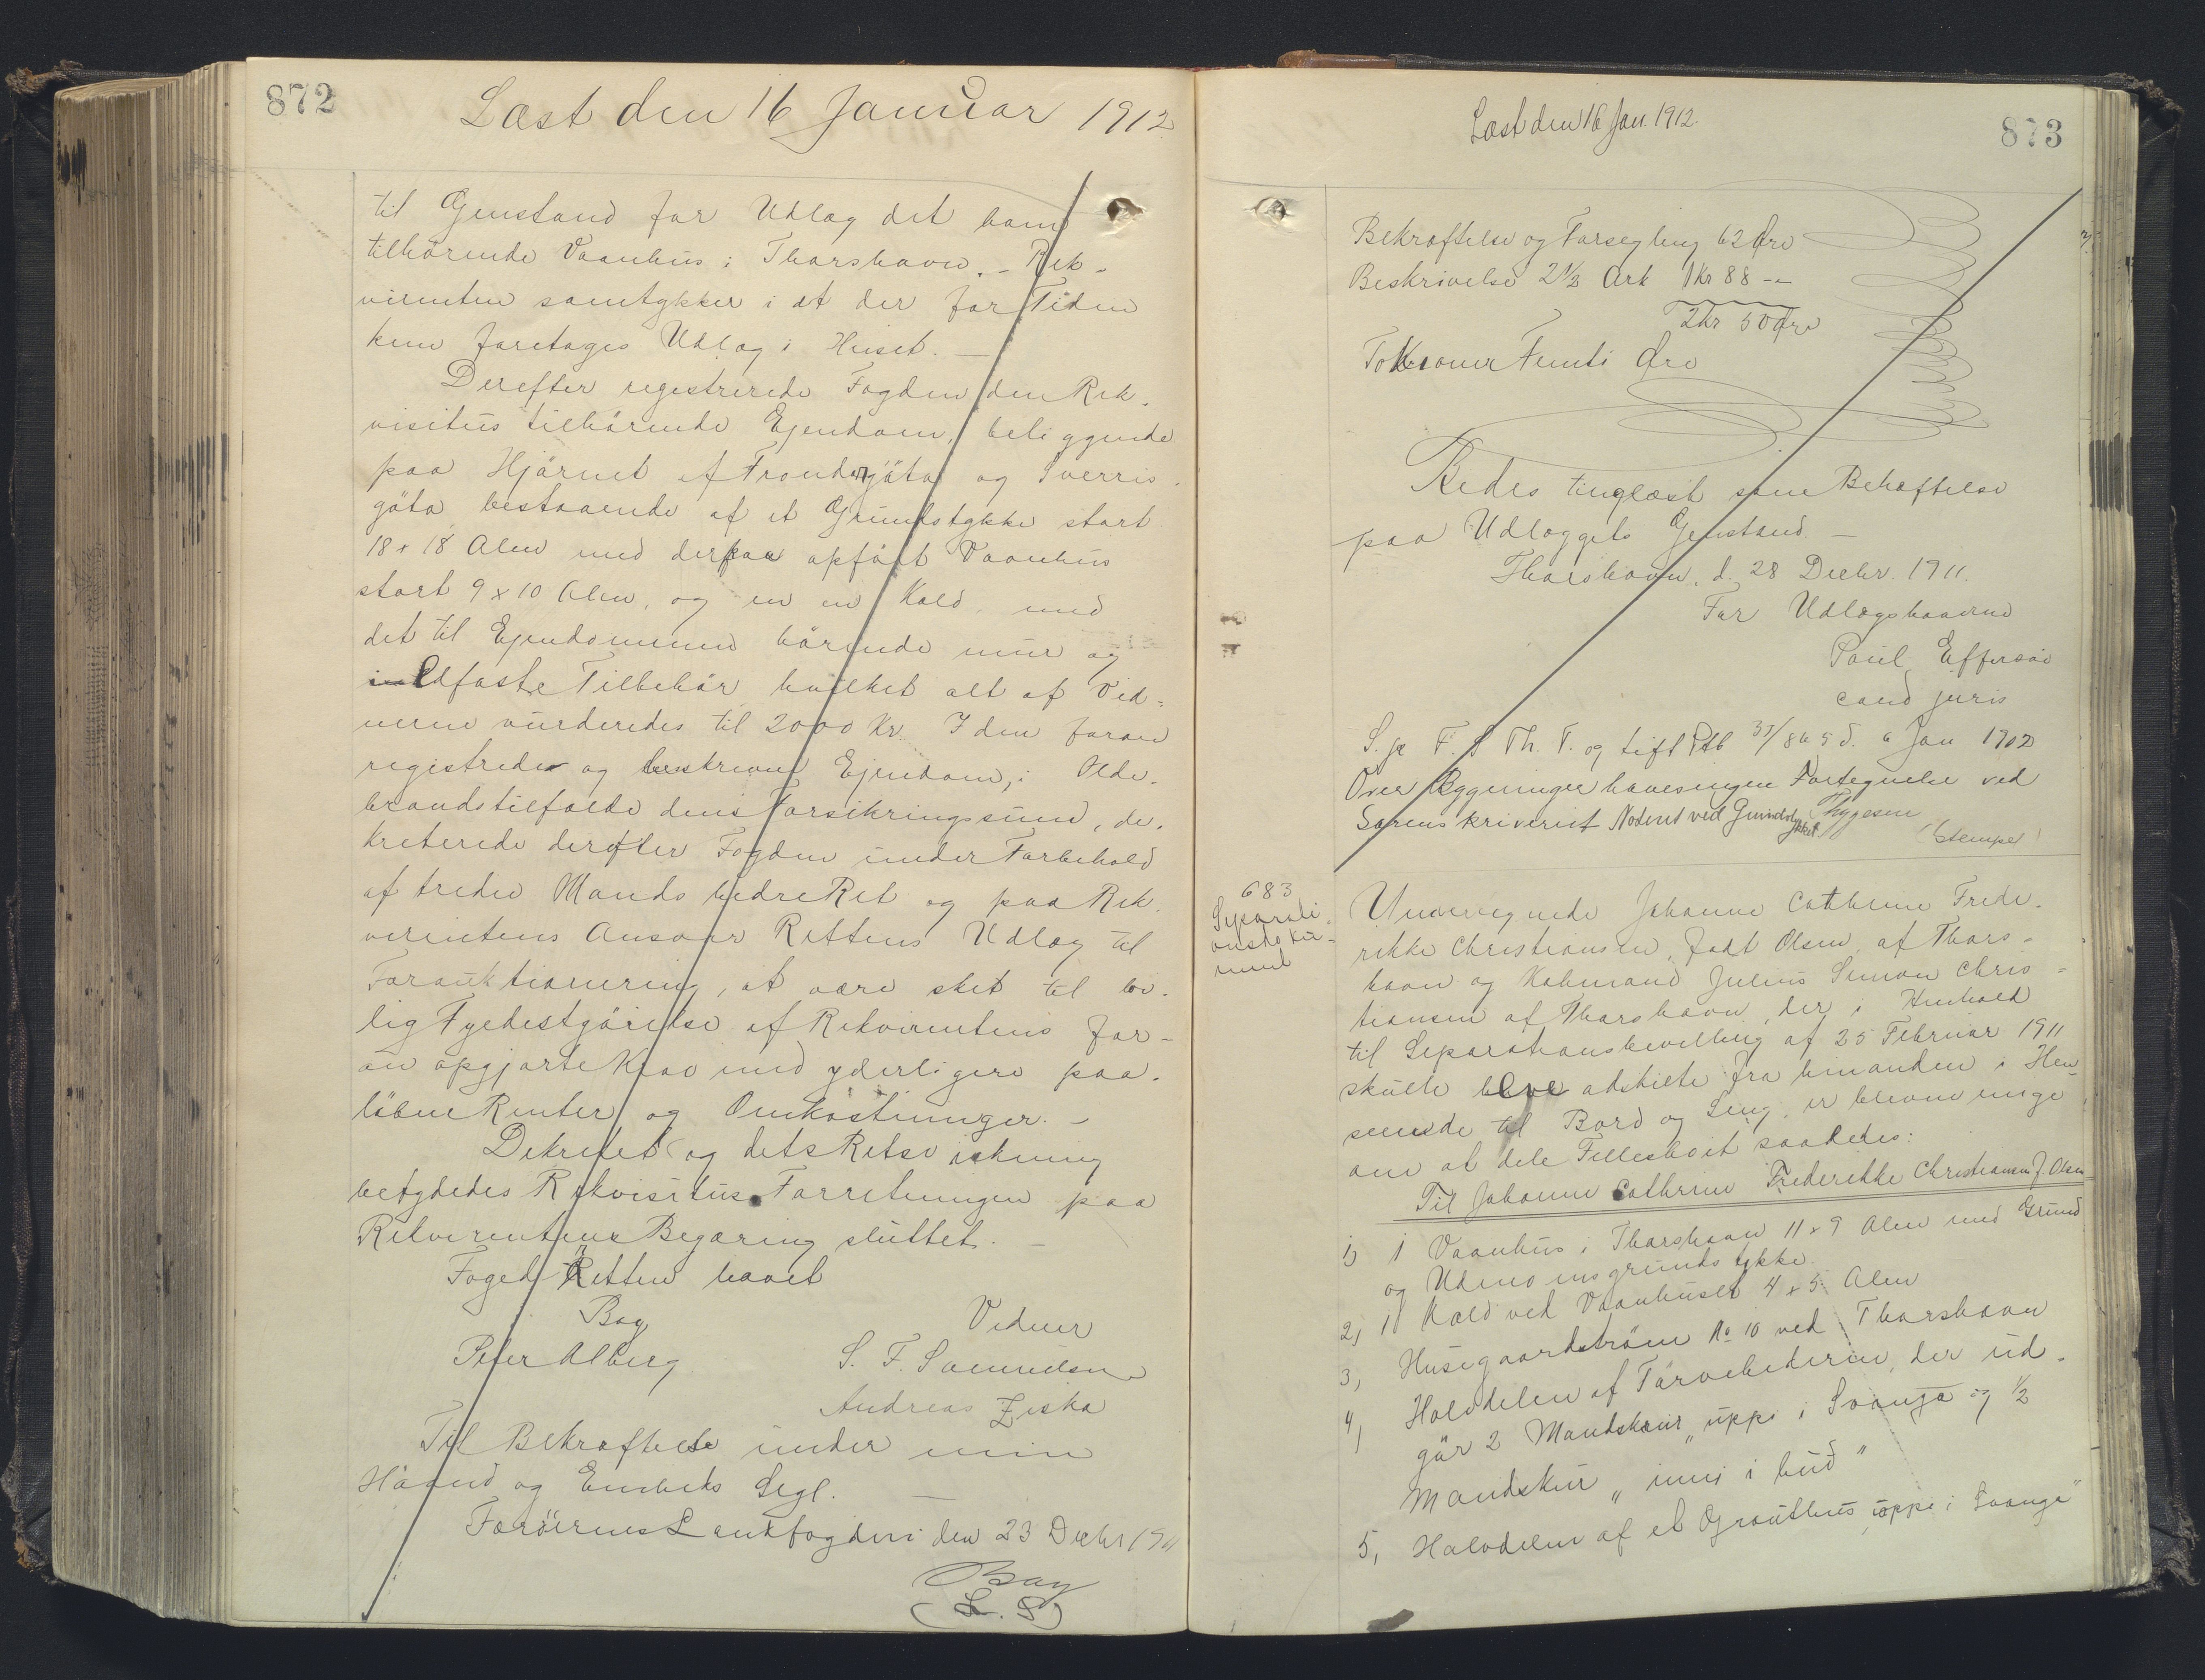 872
Læst den 16 Januar 1912
til Genstand for Udlæg det ham
tilhørende Vaanhus i Thorshavn. - Rek-
virenten samtykker i at der for Tiden
kun foretages Udlæg i Huset. -
Derefter registrerede Fogden den Rek-
visitus tilhørende Ejendom, beliggende
paa Hjørnet af Trondargöta og Sverris
göta bestaaende af et Grundstykke stort
18 x 18 Alen med derpaa opført Vaanhus
stort 9 x 10 Alen, og en en Kold, med
det til Ejendommen hørende mur og
i Elfaste Tilbehør hvilket alt af Vid-
nerne vurderedes til 2000 Kr. I den foran
registrede og beskrevne Ejendom, i Ilde-
brandstilfælde dens Forsikringssum, de-
kreterede derefter Fogden under Forbehold
af tredie Mands bedre Ret og paa Rek-
virentens Ansvar Rettens Udlæg til
Forauktionering, at være sket til lov-
lig Fyldestgørelse af Rekvirentens for-
an opgjorte Krav med yderligere paa-
løbne Renter og Omkostninger. -
Dekretet og dets Retsvirkning
betydedes Rekvisitus. Forretningen paa
Rekvirentens Begæring sluttet. -
Foged Retten hævet
Bay
Vidner
Peter Alberg
S. F. Samuelsen
Andreas Ziska
Til Bekræftelse under min
Haand og Embeds Segl. -
Færøernes Landfogderi den 23 Decbr 1911
Bay
(L. S)
Læst den 16 Jan. 1912.
873
Bekræftelse og Forsegling 62 Øre
Beskrivelse 2½ Ark 1 Kr 88 -"-
2 Kr 50 Øre
To Kroner Femti Øre
Bedes tinglæst som Behæftelse
paa Udlæggets Genstand. -
Thorshavn, d. 28 Decbr. 1911.
For Udlægshaveren
Poul Effersøe
cand juris
S. f. T. S Th. T. og tilf Ptb 37/869 d. 6 Jan 1912
Over Bygninger haves ingen Fortegnelse ved
Sorenskriveriet Noteret ved Grundstykket
Thygesen
(Stempel)
683
Separati-
onsdoku-
ment
Undertegnede Johanne Cathrine Frede-
rikke Christiansen, født Olsen, af Thors-
havn og Købmand Julius Simon Chris-
tiansen af Thorshavn, der i Henhold
til Separationsbevilling af 25 Februar 1911
skulle blive adskilte fra hinanden i Hen-
seende til Bord og Seng, er blevne enige
om at dele Fællesboet saaledes:
Til Johanne Cathrine Frederikke Christiansen f. Olsen
1) 1 Vaanhus i Thorshavn 11 x 9 Alen med Grund
og Udenomsgrundstykke
2, 1 Kold ved Vaanhuset 4 x 5 Alen
3, Husegaardstrøen No 10 ved Thorshavn
4, Halvdelen af Tørvehederne, der ud-
gør 2 Mandskur „uppi i Svanga og ½
Mandskur „inni i búd"
5, Halvdelen af et Grouthus „uppi i Svanga"